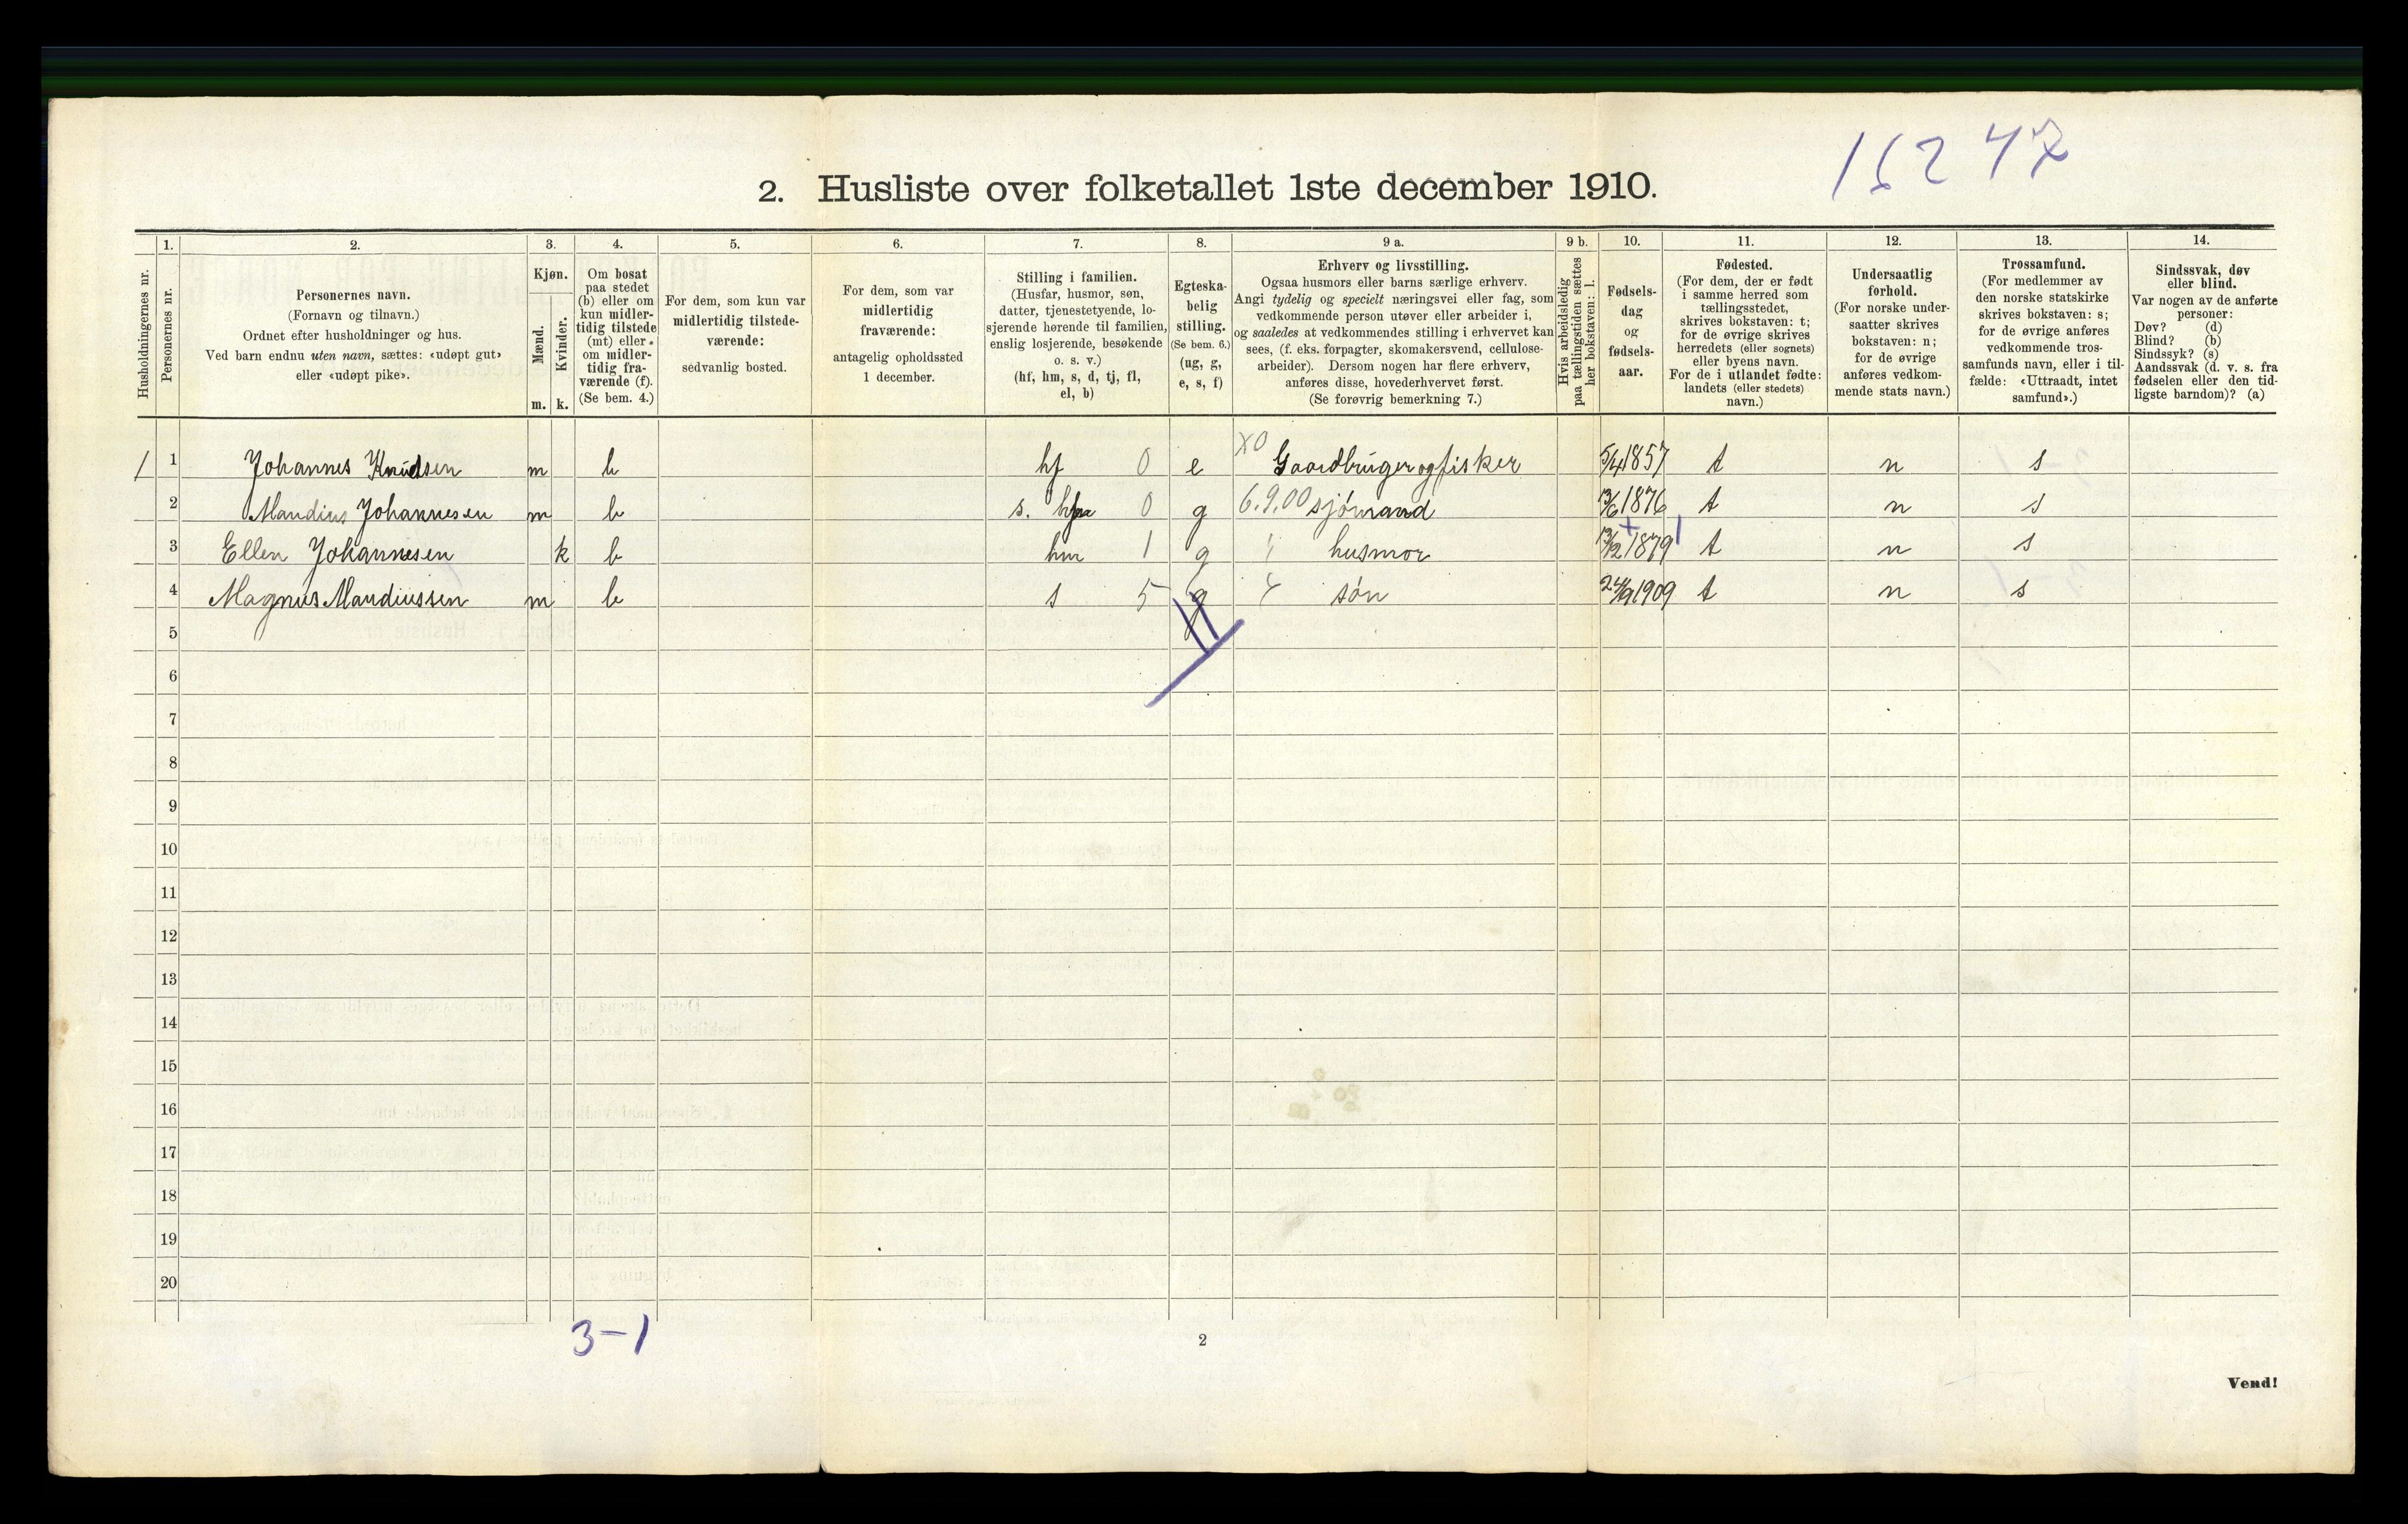 16247
2. Husliste over folketallet 1ste december 1910.
Husholdningernes nr.
1. Personernes nr.
2.
Personernes navn.
(Fornavn og tilnavn.)
Ordnet efter husholdninger og hus.
Ved barn endnu uten navn, sættes: «udøpt gut»
eller «udøpt pike».
3.
Kjøn.
Mænd.
Kvinder.
m. k.
4.
Om bosat
paa stedet
(b) eller om
kun midler-
tidig tilstede
(mt) eller
om midler-
tidig fra-
værende (f).
(Se bem. 4.)
5.
For dem, som kun var
midlertidig tilstede-
værende:
sedvanlig bosted.
6.
For dem, som var
midlertidig
fraværende:
antagelig opholdssted
1 december.
7.
Stilling i familien.
(Husfar, husmor, søn,
datter, tjenestetyende, lo-
sjerende hørende til familien,
enslig losjerende, besøkende
o. s. v.)
(hf, hm, s, d, tj, fl,
el, b)
8.
Egteska-
belig
stilling.
(Se bem. 6.)
(ug, g,
e, s, f)
9 a.
Erhverv og livsstilling.
Ogsaa husmors eller barns særlige erhverv.
Angi tydelig og specielt næringsvei eller fag, som
vedkommende person utøver eller arbeider i,
og saaledes at vedkommendes stilling i erhvervet kan
sees, (f. eks. forpagter, skomakersvend, cellulose-
arbeider). Dersom nogen har flere erhverv,
anføres disse, hovederhvervet først.
(Se forøvrig bemerkning 7.)
9 b.
Hvis arbeidsledig
paa tællingstiden sættes
her bokstaven: l.
10.
Fødsels-
dag
og
fødsels-
aar.
11.
Fødested.
(For dem, der er født
i samme herred som
tællingsstedet,
skrives bokstaven: t;
for de øvrige skrives
herredets (eller sognets)
eller byens navn.
For de i utlandet fødte:
landets (eller stedets)
navn.)
12.
Undersaatlig
forhold.
(For norske under-
saatter skrives
bokstaven: n;
for de øvrige
anføres vedkom-
mende stats navn.)
13.
Trossamfund.
(For medlemmer av
den norske statskirke
skrives bokstaven: s;
for de øvrige anføres
vedkommende tros-
samfunds navn, eller i til-
fælde: «Uttraadt, intet
samfund».)
14.
Sindssvak, døv
eller blind.
Var nogen av de anførte
personer:
Døv? (d)
Blind? (b)
Sindssyk? (s)
Aandssvak (d. v. s. fra
fødselen eller den tid-
ligste barndom)? (a)
1 1 Johannes Knudsen m b hf 0 e X0 Gaardbruger og fisker 5/4 1857 t n s
2 Maudius Johannesen m b s. 0 g 6.9.00 sjømand 13/6 1876 t n s
3 Ellen Johannesen k b hm 1 g husmor 13/2 1879 t n s
4 Magnus Maudiussen m b s 5 g søn 24/9 1909 t n s
5
6
7
8
9
10
11
12
13
14
15
16
17
18
19
20
3-1
2
Vend!